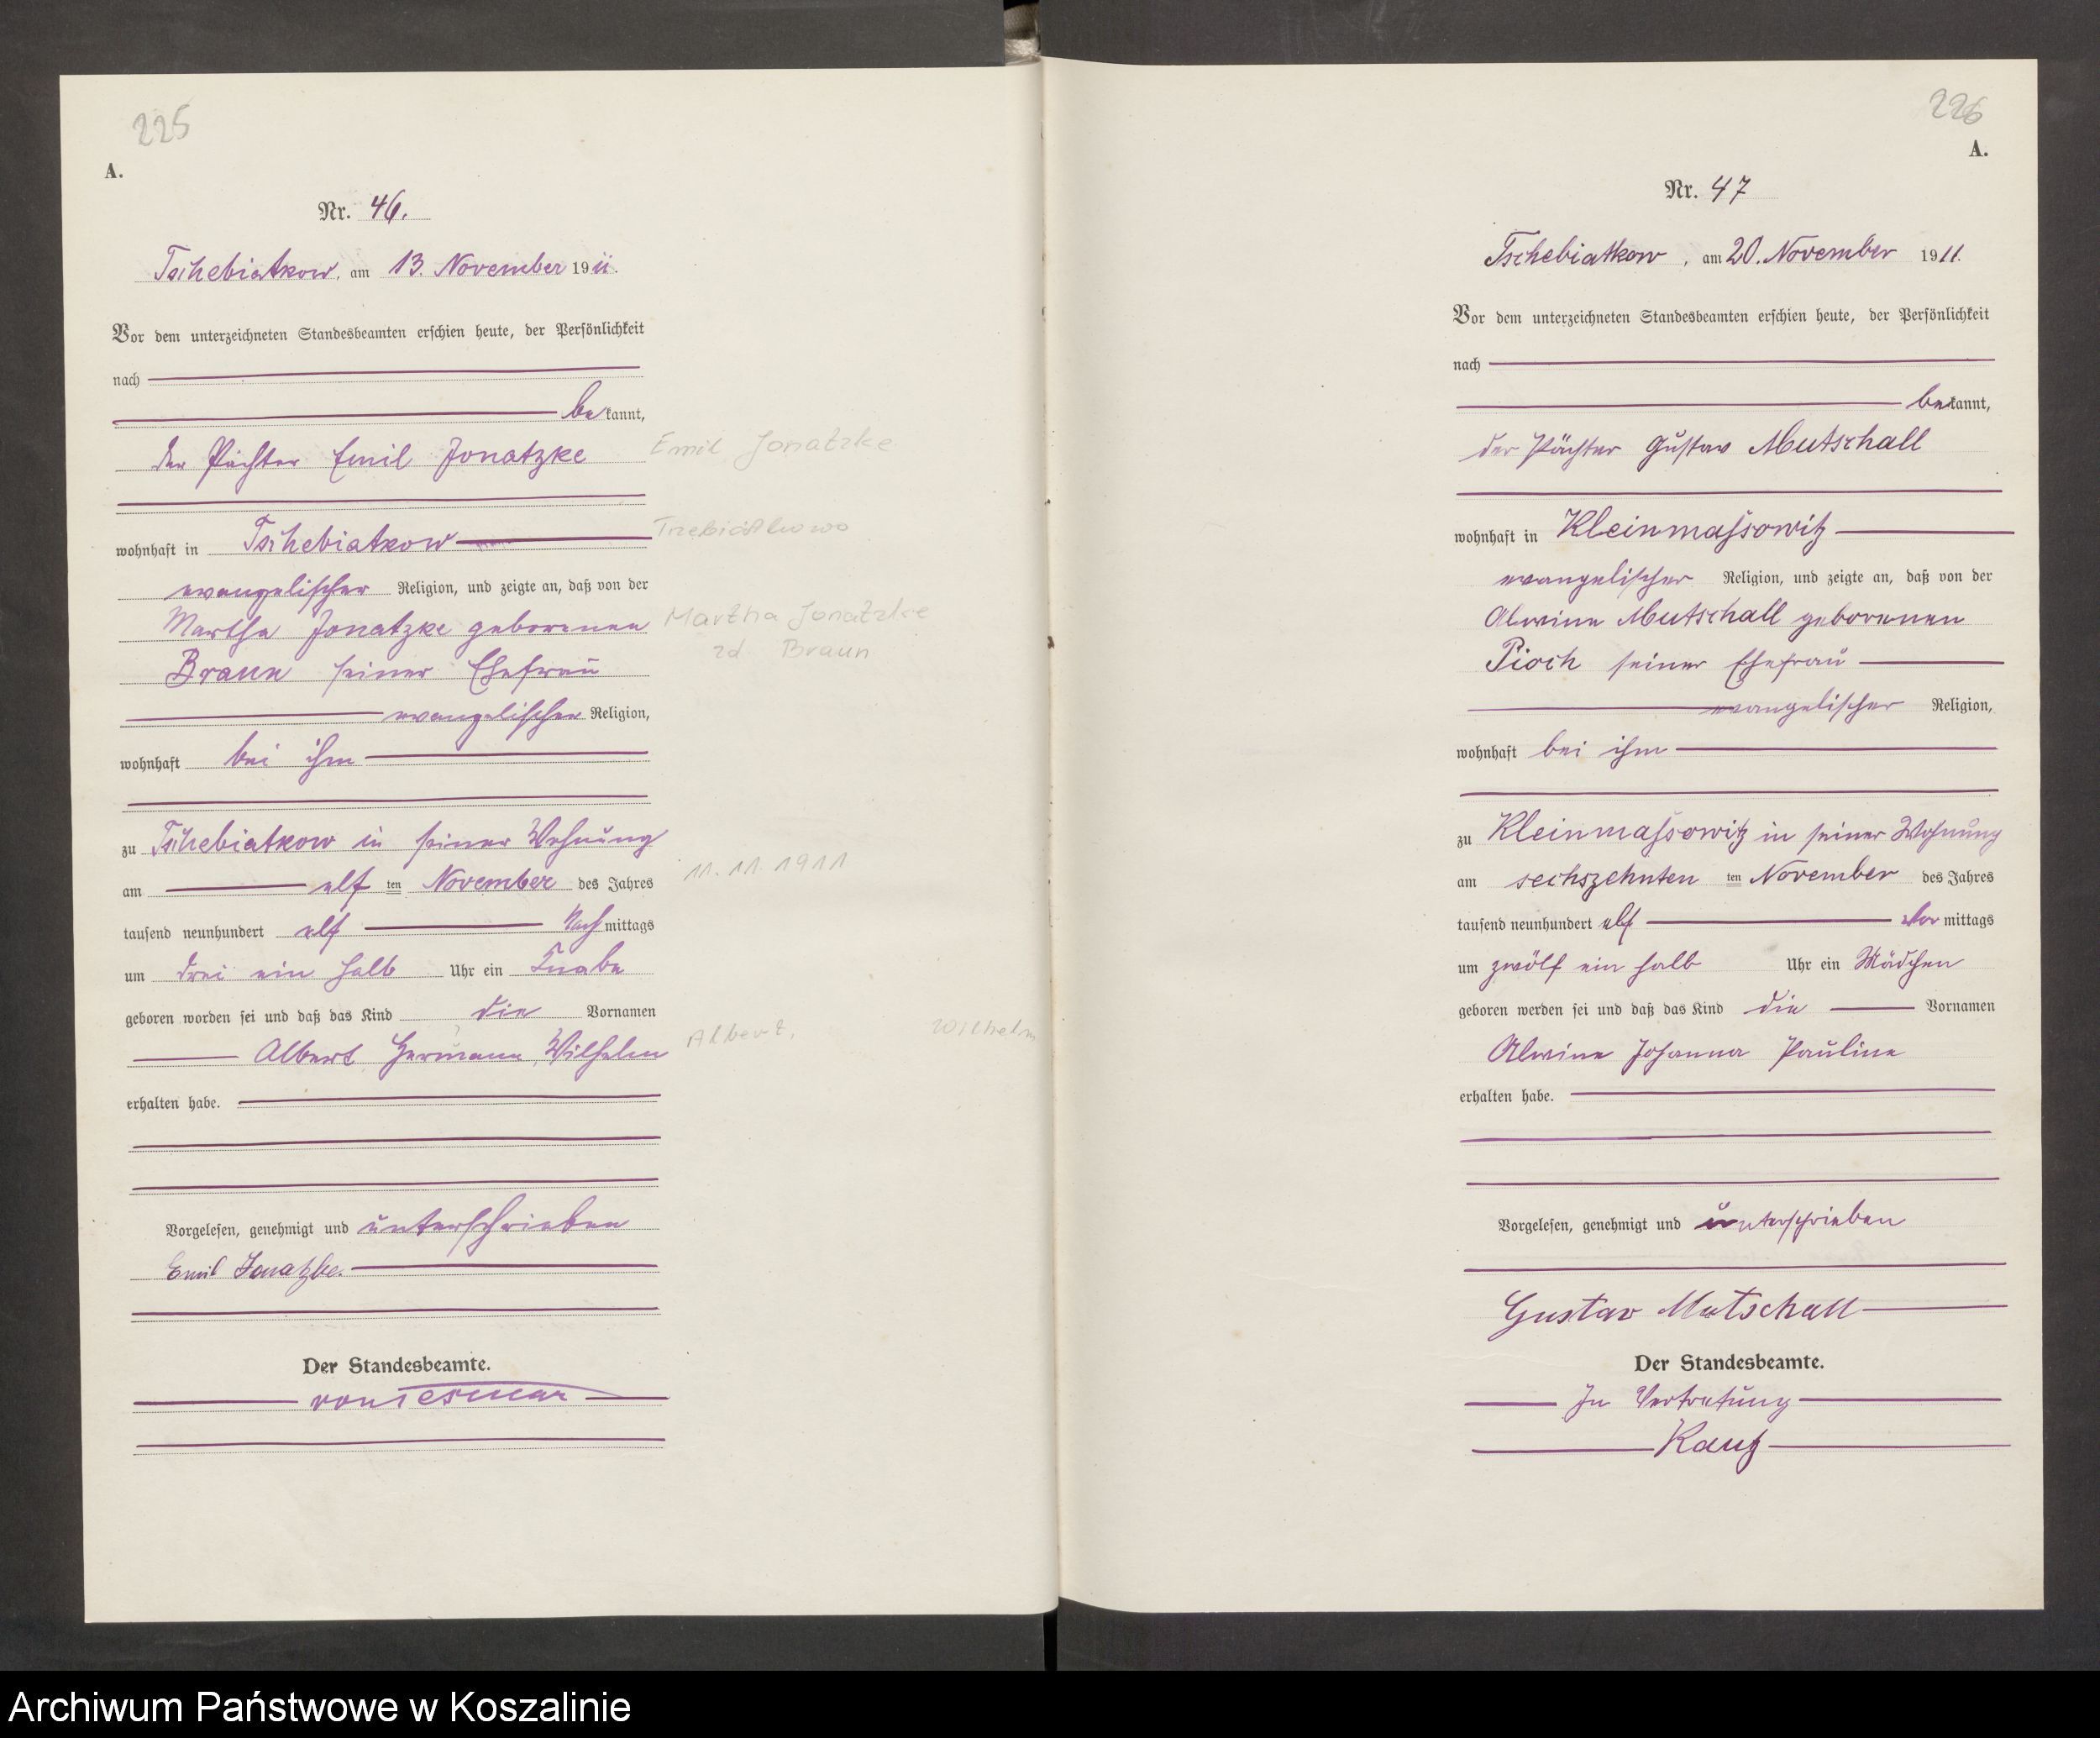 225
A.
Nr. 46.
Tschebiatkow, am 13. November 1911.
Vor dem unterzeichneten Standesbeamten erschien heute, der Persönlichkeit
nach
bekannt,
der Pächter Emil Jonatzke
Emil Jonatzke
wohnhaft in Tschebiatkow
Trzebiatkowo
evangelischer Religion, und zeigte an, daß von der
Martha Jonatzke geborenen
Martha Jonatzke
Braun seiner Ehefrau
zd Braun
evangelischer Religion,
wohnhaft bei ihm
zu Tschebiatkow in seiner Wohnung
am elf ten November des Jahres
11.11.1911
tausend neunhundert elf Nachmittags
um drei ein halb Uhr ein Knabe
geboren worden sei und daß das Kind die Vornamen
Albert Hermann Wilhelm
Albert, Wilhelm
erhalten habe.
Vorgelesen, genehmigt und unterschrieben
Emil Jonatzke.
Der Standesbeamte.
von Tesmar
226
A.
Nr. 47
Tschebiatkow, am 20. November 1911.
Vor dem unterzeichneten Standesbeamten erschien heute, der Persönlichkeit
nach
bekannt,
der Pächter Gustav Mutschall
wohnhaft in Kleinmassowitz
evangelischer Religion, und zeigte an, daß von der
Alwine Mutschall geborenen
Pioch seiner Ehefrau
evangelischer Religion,
wohnhaft bei ihm
zu Kleinmassowitz in seiner Wohnung
am sechszehnten ten November des Jahres
tausend neunhundert elf Vormittags
um zwölf ein halb Uhr ein Mädchen
geboren worden sei und daß das Kind die Vornamen
Alwine Johanna Pauline
erhalten habe.
Vorgelesen, genehmigt und unterschrieben
Gustav Mutschall
Der Standesbeamte.
In Vertretung
Kautz
Archiwum Państwowe w Koszalinie